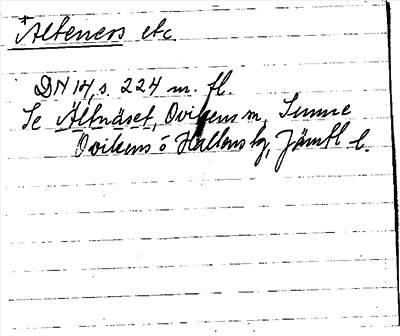 +Alteness etc
DN 14, s. 224 m. fl.
Se Ältnäset, Ovikens sn, Sunne
Ovikens o Hallens tg, Jämtl l.